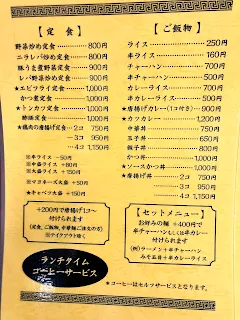 【定 食】
野菜炒め定食 800円
ニラレバ炒め定食 800円
豚うま煮野菜定食 900円
レバ野菜炒め定食 900円
★エビフライ定食 1,000円
かつ煮定食 1,000円
★トンカツ定食 1,000円
酢豚定食 1,000円
★鶏肉の唐揚げ定食 2コ 750円
3コ 950円
4コ 1,150円
※半ライス -50円
※中盛ライス +50円
※大盛ライス +150円
★マヨネーズ大盛 +50円
★キャベツ大盛 +150円
+200円で唐揚げ1コへ
付けられます
(定食、ご飯物、中華麺ご注文の方)
※テイクアウト除く
ランチタイム
コーヒーサービス
【ご飯物】
ライス 250円
半ライス 160円
チャーハン 700円
半チャーハン 500円
カレーライス 700円
半カレーライス 500円
★唐揚げカレー(1コ付き) 900円
★カツカレー 1,200円
中華丼 750円
玉子丼 650円
親子丼 800円
かつ丼 1,000円
★ソースかつ丼 1,000円
★唐揚げ丼 2コ 750円
3コ 950円
4コ 1,150円
【セットメニュー】
お好みの麺 +400円で
半チャーハンもしくは半カレー
付けられます
(例)ラーメン+半チャーハン
みそ五目+半カレーライス
※コーヒーはセルフサービスとなります。